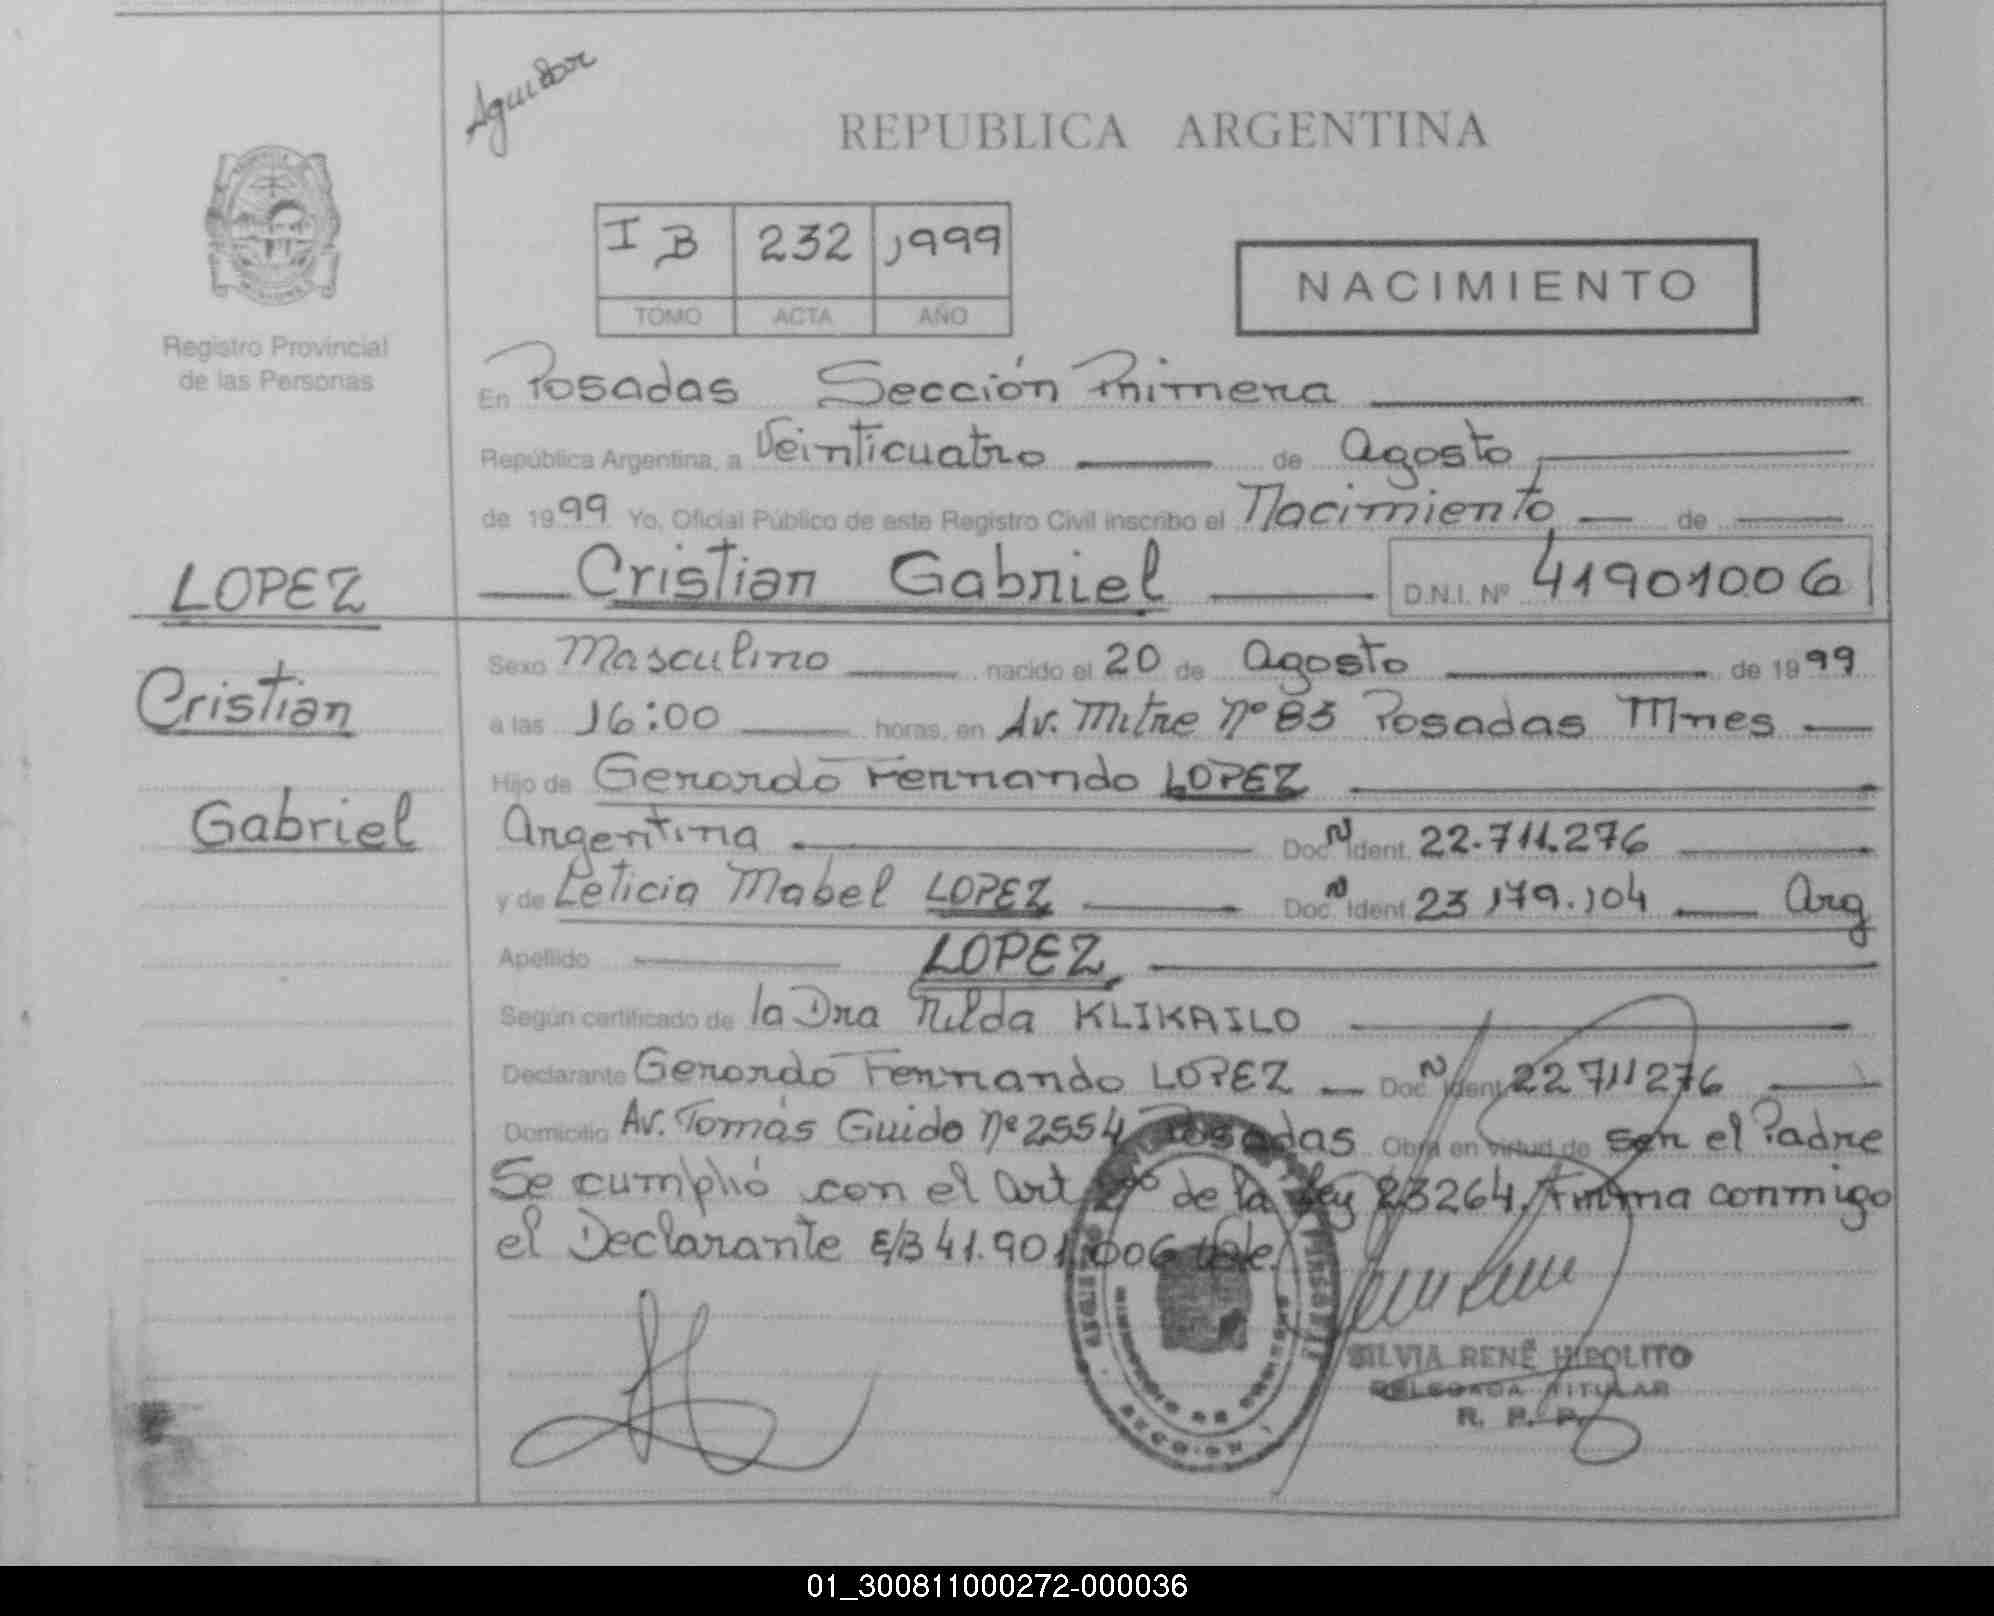 Aguidor
REPUBLICA ARGENTINA
I B 232 1999
TOMO ACTA AÑO
NACIMIENTO
Registro Provincial
de las Personas
En Posadas Sección Primera
República Argentina, a Veinticuatro de Agosto
de 1999 Yo, Oficial Público de este Registro Civil inscribo el Nacimiento de
Cristian Gabriel D.N.I. Nº 41901006
LOPEZ
Cristian
Gabriel
Sexo Masculino nacido el 20 de Agosto de 1999
a las 16:00 horas, en Av. Mitre nº 83 Posadas Mnes
Hijo de Gerardo Fernando LOPEZ
Argentina Doc. N Ident. 22.711.276
y de Leticia Mabel LOPEZ Doc. N Ident. 23.179.104 Arg
Apellido LOPEZ
Según certificado de la Dra Nilda KLIKAILO
Declarante Gerardo Fernando LOPEZ Doc. N Ident. 22711276
Domicilio Av. Tomás Guido nº 2554 Posadas Obra en virtud de ser el Padre
Se cumplió con el Art de la Ley 23264. Firma conmigo
el Declarante E/B 41.901.006 Vale.
SILVIA RENÉ HIPOLITO
DELEGADA TITULAR
R. P. P.
01_300811000272-000036